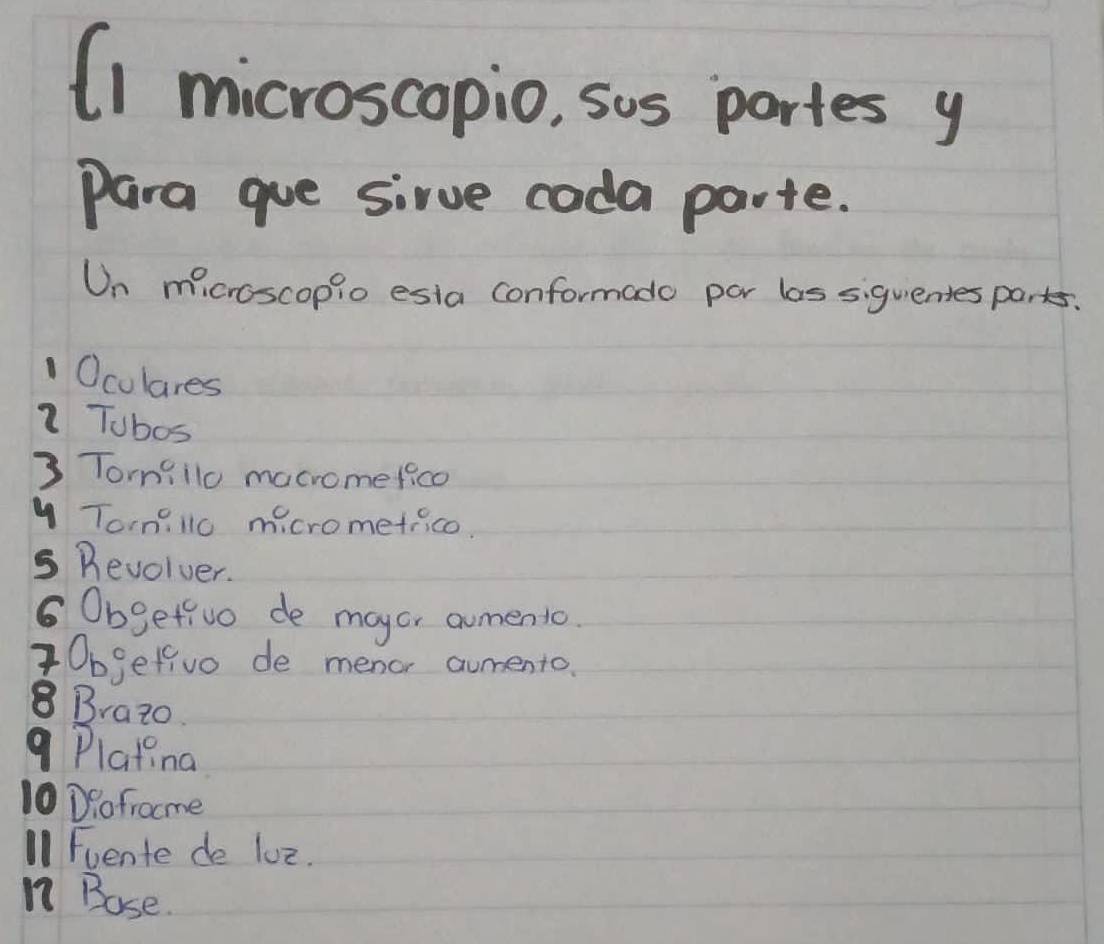 El microscopio, sus partes y
para que sirve cada parte.
Un microscopio esta conformado por las siguientes partes.
1 Oculares
2 Tubos
3 Tornillo macrometico
4 Tornillo micrometrico.
5 Revolver.
6 Objetivo de mayor aumento.
7 Objetivo de menor aumento.
8 Brazo.
9 Platina
10 Diafracme
11 Fuente de luz.
12 Base.